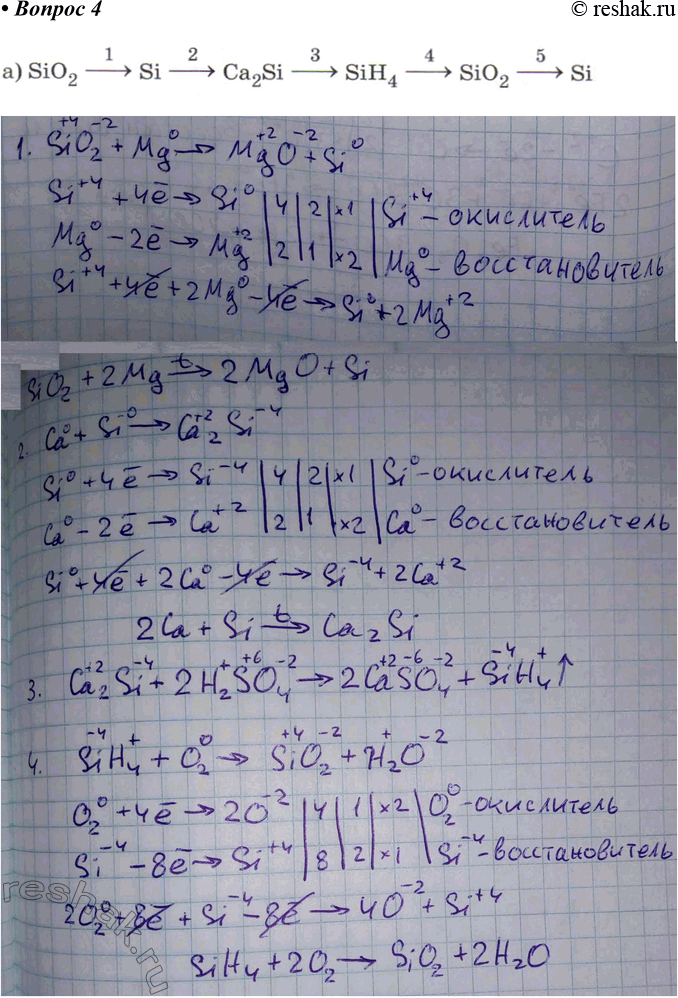 • Вопрос 4
© reshak.ru
а) SiO₂ —1→ Si —2→ Ca₂Si —3→ SiH₄ —4→ SiO₂ —5→ Si
1. Si⁺⁴O₂⁻² + Mg⁰ → Mg⁺²O⁻² + Si⁰
Si⁺⁴ + 4ē → Si⁰ | 4 | 2 | ×1 | Si⁺⁴ – окислитель
Mg⁰ – 2ē → Mg⁺² | 2 | 1 | ×2 | Mg⁰ – восстановитель
Si⁺⁴ + 4ē + 2Mg⁰ – 4ē → Si⁰ + 2Mg⁺²
SiO₂ + 2Mg —t→ 2MgO + Si
2. Ca⁰ + Si⁰ → Ca₂⁺²Si⁻⁴
Si⁰ + 4ē → Si⁻⁴ | 4 | 2 | ×1 | Si⁰ – окислитель
Ca⁰ – 2ē → Ca⁺² | 2 | 1 | ×2 | Ca⁰ – восстановитель
Si⁰ + 4ē + 2Ca⁰ – 4ē → Si⁻⁴ + 2Ca⁺²
2Ca + Si —t→ Ca₂Si
3. Ca₂⁺²Si⁻⁴ + 2H₂⁺S⁺⁶O₄⁻² → 2Ca⁺²S⁻⁶O₄⁻² + Si⁻⁴H₄⁺↑
4. Si⁻⁴H₄⁺ + O₂⁰ → Si⁺⁴O₂⁻² + H₂⁺O⁻²
O₂⁰ + 4ē → 2O⁻² | 4 | 1 | ×2 | O₂⁰ – окислитель
Si⁻⁴ – 8ē → Si⁺⁴ | 8 | 2 | ×1 | Si⁻⁴ – восстановитель
2O₂⁰ + 8ē + Si⁻⁴ – 8ē → 4O⁻² + Si⁺⁴
SiH₄ + 2O₂ → SiO₂ + 2H₂O
reshak.ru